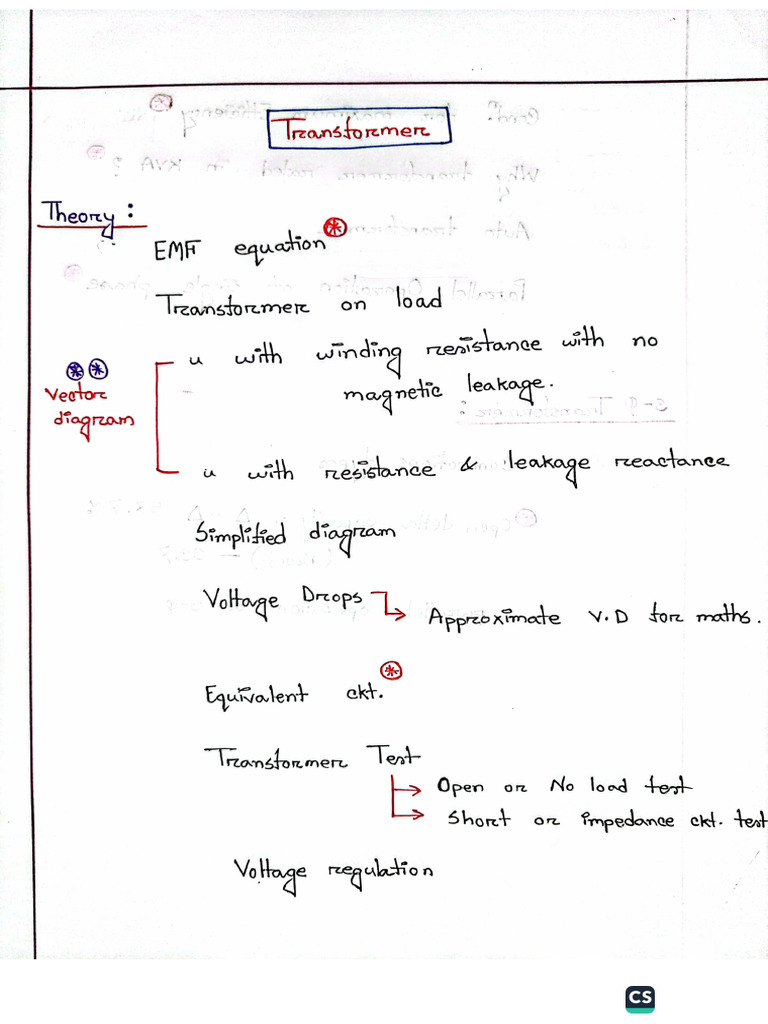 Transformer
Theory :
EMF equation
Transformer on load
u with winding resistance with no
magnetic leakage.
Vector
diagram
u with resistance & leakage reactance
Simplified diagram
Voltage Drops
Approximate V.D for maths.
Equivalent ckt.
Transformer Test
Open or No load test
Short or impedance ckt. test
Voltage regulation
CS